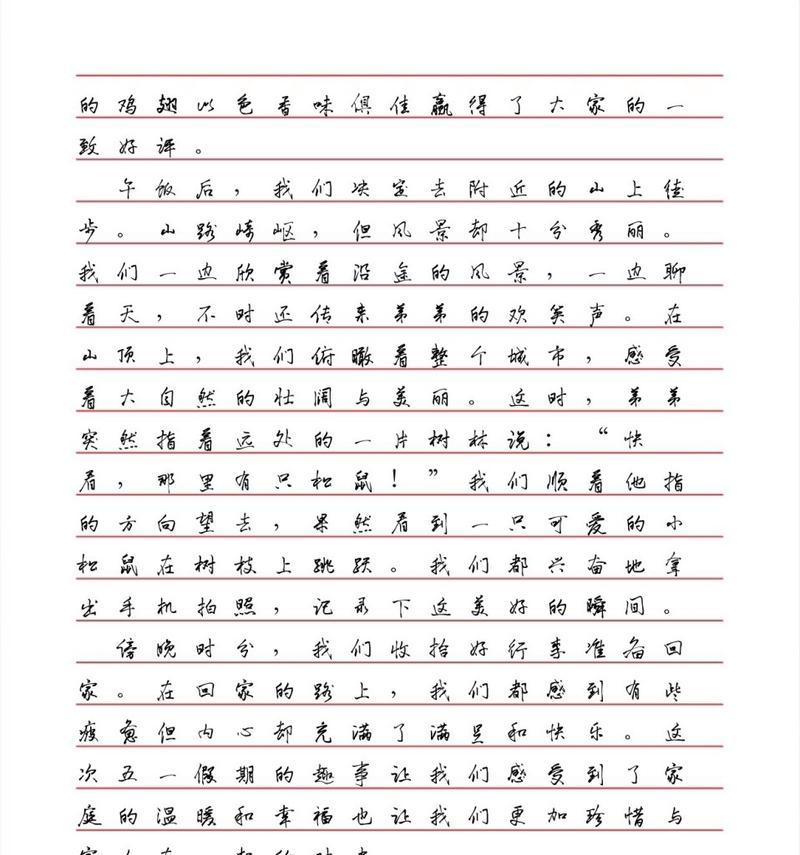 的鸡翅以色香味俱佳赢得了大家的一
致好评。
午饭后，我们决定去附近的山上徒
步。山路崎岖，但风景却十分秀丽。
我们一边欣赏着沿途的风景，一边聊
着天，不时还传来弟弟的欢笑声。在
山顶上，我们俯瞰着整个城市，感受
着大自然的壮阔与美丽。这时，弟弟
突然指着远处的一片树林说：“快
看，那里有只松鼠！”我们顺着他指
的方向望去，果然看到一只可爱的小
松鼠在树枝上跳跃。我们都兴奋地拿
出手机拍照，记录下这美好的瞬间。
傍晚时分，我们收拾好行李准备回
家。在回家的路上，我们都感到有些
疲惫但内心却充满了满足和快乐。这
次五一假期的趣事让我们感受到了家
庭的温暖和幸福也让我们更加珍惜与